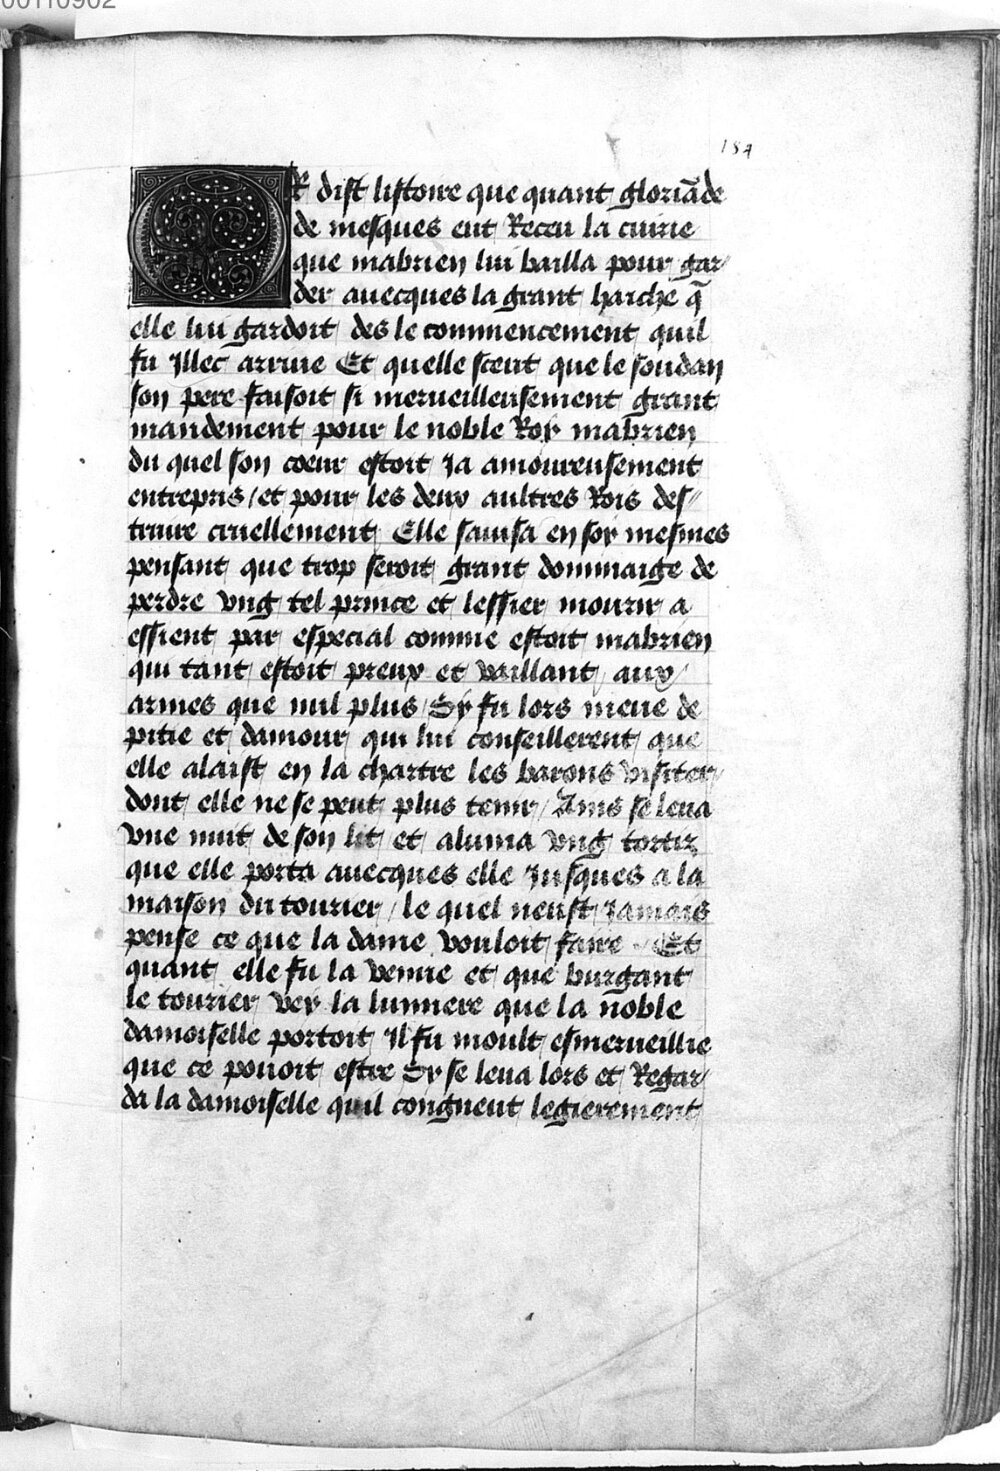 00110902
184
OR dist listoire que quant gloriāde
de mesques eut Receu la cuirie
que mabrien lui bailla pour gar/
der auecques la grant hache q̄
elle lui gardoit des le commencement quil
fu Illec arriue Et quelle sceut que le soudan
son pere faisoit si merueilleusement grant
mandement pour le noble Roy mabrien
du quel son coeur estoit Ja amoureusement
entrepris / et pour les deux aultres Rois des//
truire cruellement Elle sauisa en soy mesmes
pensant que trop seroit grant dommaige de
perdre vng tel prince et lessier mourir a
essient par especial comme estoit mabrien
qui tant estoit preux et vaillant aux
armes que nul plus / Sy fu lors meue de
pitie et damour qui lui conseillerent que
elle alaist en la chartre les barons visiter
dont elle ne se peut plus tenir / Ains se leua
vne nuit de son lit et aluma vng tortiz
que elle porta auecques elle Jusques a la
maison du tourier / le quel neust Jamais
pense ce que la dame vouloit faire Et
quant elle fu la venue et que burgant
le tourier vey la lumiere que la noble
damoiselle portoit Il fu moult esmerueillie
que ce pouoit estre Sy se leua lors et Regar/
da la damoiselle quil congneut legierement